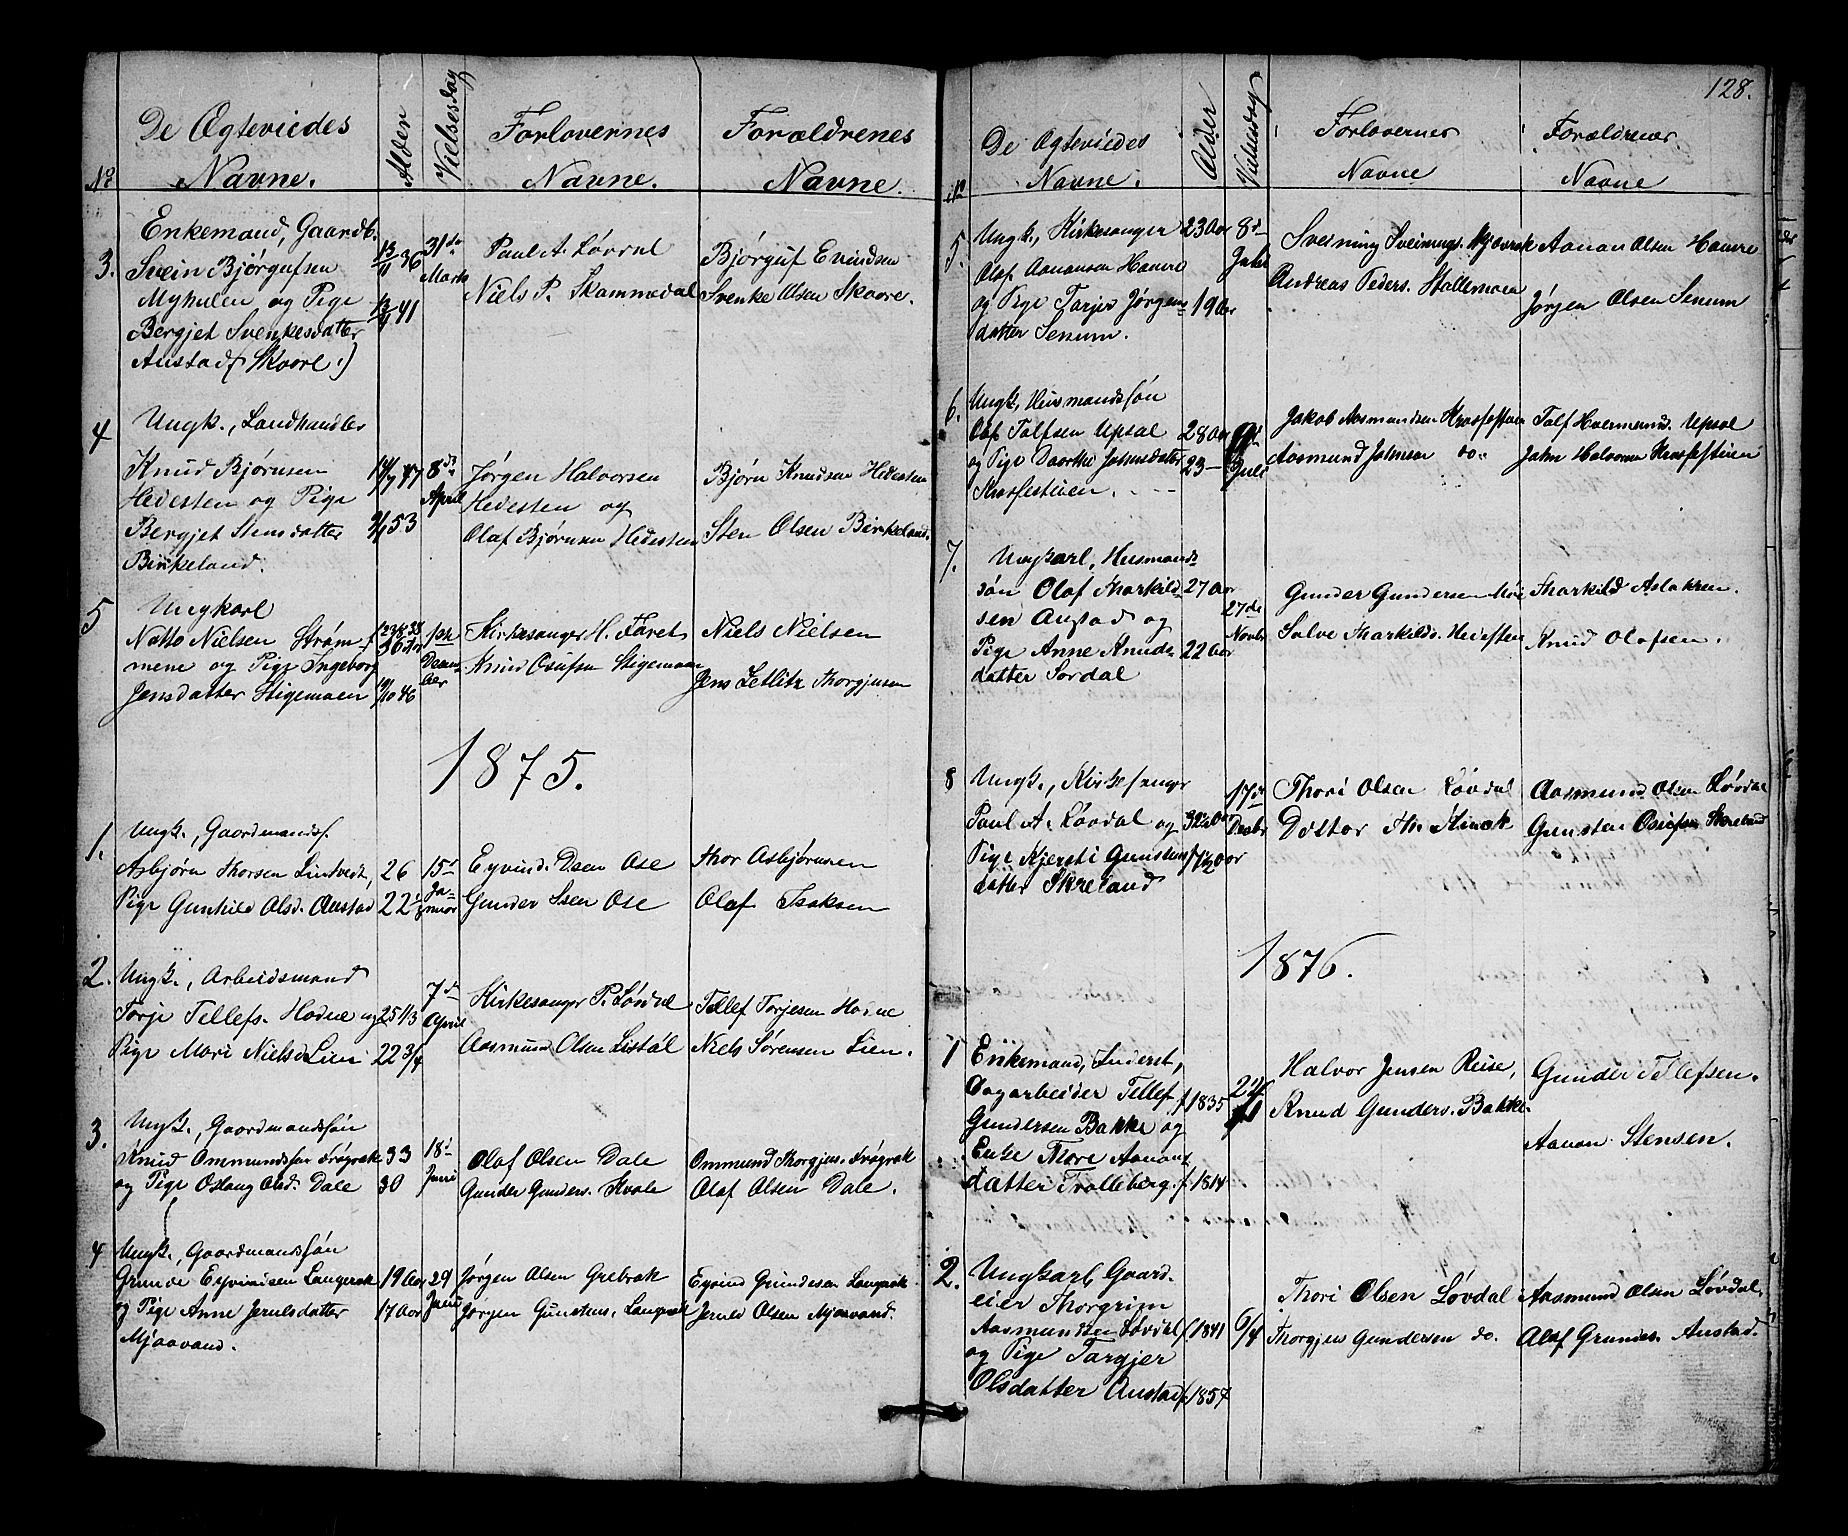 128.
No
De Ægteviedes Navne.
Alder
Vielsesdag
Forlovernes Navne.
Forældrenes Navne.
3.
Enkemand, Gaardb.
Svein Bjørgufsen
Myhulen og Pige
Bergjet Svenkesdatter
Austad (Skaare.)
13/11 36
41
31te Marts
Paul A. Løvdal
Niels P. Skammedal
Bjørguf Evindsen
Svenke Olsen Skaare.
4
Ungk., Landhandler
Knud Bjørnsen
Hedesten og Pige
Bergjet Stensdatter
Birkeland.
47
53
8de April
Jørgen Halvorsen
Hedesten og
Olaf Bjørnsen Hedesten
Bjørn Knudsen Hedesten
Sten Olsen Birkeland.
5
Ungkarl
Natto Nielsen Strøm-
mene og Pige Ingeborg
Jensdatter Stigemoen
36
10/10 46
1ste December
Kirkesanger H. Faret
Knud Osufsen Stigemoen
Niels Nielsen
Jens Zetlitz Thorgjusen
1875.
1.
Ungk., Gaardmandsf.
Asbjørn Thorsen Lindtvedt,
Pige Gunhild Olsd. Austad
26
22
15d Januar
Eyvind Dsen Ose
Gunder Ssen Ose
Thor Asbjørnsen
Olaf Isaksen
2.
Ungk., Arbeidsmand
Torje Tellefs. Hodne og
Pige Mari Nielsd. Lien
25 1/3
22 3/4
7de April
Kirkesanger P. Løvdal
Aasmund Olsen Listøl
Tellef Torjesen Hodne
Niels Sørensen Lien.
3.
Ungk., Gaardmandssøn
Knud Ommundsen Frøysak
og Pige Oslaug Olsd. Dale
33
30
18d Juni
Olaf Olsen Dale
Gunder Gunders. Kvale
Ommund Thorgjus. Frøysak
Olaf Olsen Dale.
4
Ungk., Gaardmandssøn
Grunde Eyvindsen Langerak
og Pige Anne Jerulsdatter
Mjaavand.
19 Aar
17 Aar
29 Juni
Jørgen Olsen Grebrok
Jørgen Gunstens. Langerak
Eyvind Grundesen Langerak
Jeruld Olsen Mjaavand.
No
De Ægteviedes Navne.
Alder
Vielsesdag
Forlovernes Navne
Forældrenes Navne
5.
Ungk., Kirkesanger
Olaf Aanonsen Haavre
og Pige Tarjer Jørgens-
datter Senum.
23 Aar
19 Aar
8d Juli
Sveinung Sveinungs. Kjævesk
Andreas Peders. Stallemoen
Aanon Olsen Haavre
Jørgen Olsen Senum
6.
Ungk, Husmandssøn
Olaf Talfsen Upsal
og Pige Doorthe Johnsdatter
Krosfestuen.
28 Aar
23 —
Juli
Jakob Aasmundsen Krosfestuen
Aasmund Johnsen do.
Talf Hoermunds. Upsal
John Halvorsen Krosfestuen
7.
Ungkarl, Husmands-
søn Olaf Tharkild-
sen Austad og
Pige Anne Knuds-
datter Sordal
27 Aar
22 Aar
27de Novbr
Gunder Gundersen Moe
Salve Tharkilds. Hedesten
Tharkild Aslaksen.
Knud Olafsen.
8
Ungk., Kirkesanger
Paul A. Løvdal og
Pige Kjersti Gunstens-
datter Skreland
32
17 1/2 Aar
17d Decbr
Thori Olsen Løvdal
Doktor Th. Kinck
Aasmund Olsen Løvdal
Gunsten Osufsen Skreland
1876.
1
Enkemand, Inderst,
Dagarbeider Tellef
Gundersen Bakke og
Enke Thore Aanon-
datter Trolleberg.
f 1835
f. 1814
Halvor Jensen Reise,
Knud Gunders. Bakke.
Gunder Tellefsen.
Aanon Stensen.
2.
Ungkarl Gaard-
eier Thorgrim
Aasmundsen Løvdal
og Pige Targjer
Olsdatter Austad
f 1841
f. 1857
6/4
Thori Olsen Løvdal
Thorgjus Gundersen do.
Aasmund Olsen Løvdal.
Olaf Grundes. Austad.